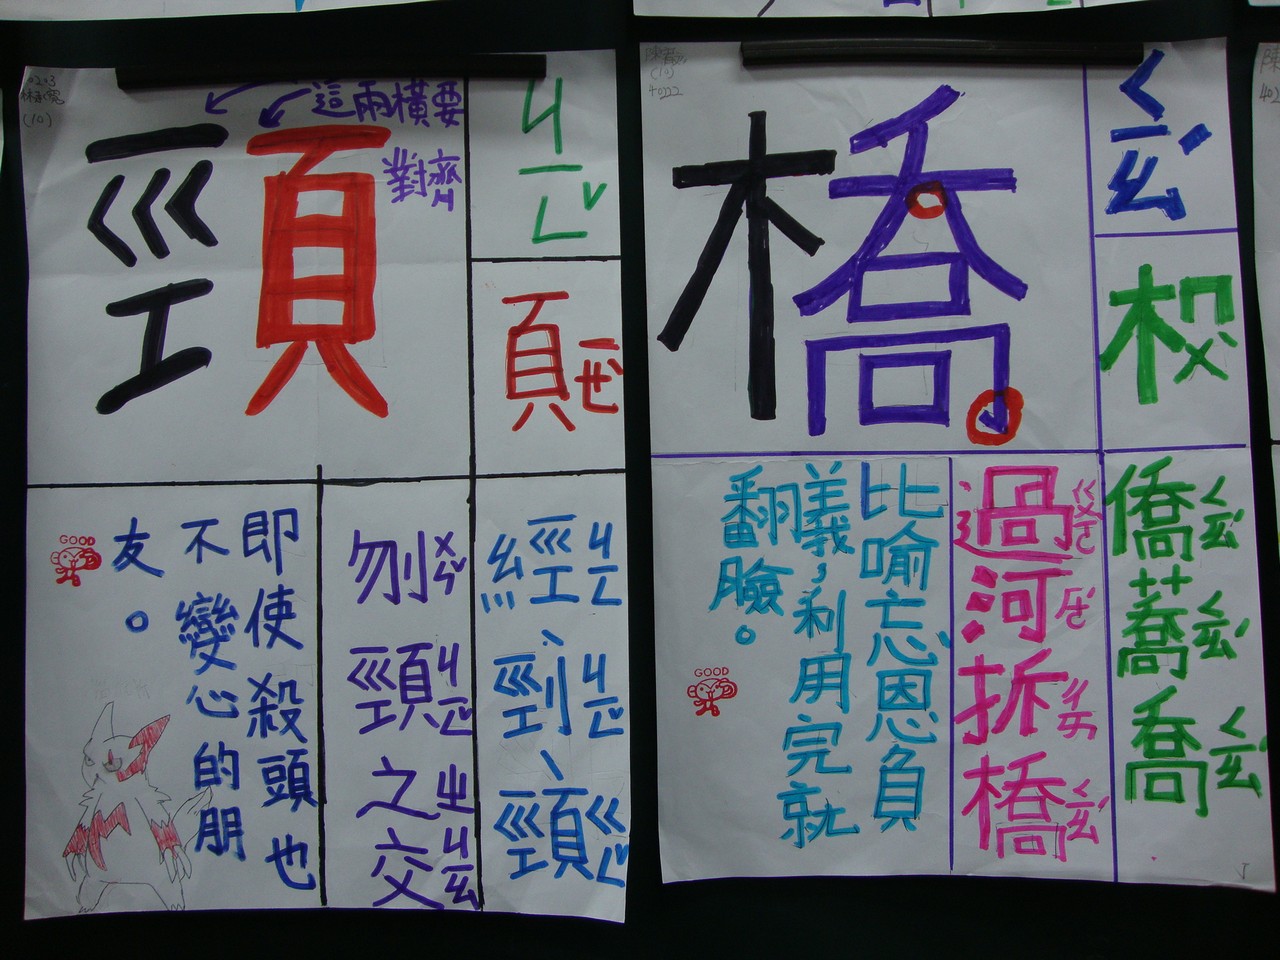 (10)
這兩橫要
對齊
頸
ㄐㄧㄥˇ
頁ㄧㄝˋ
經ㄐㄧㄥ、剄ㄐㄧㄥˇ、頸ㄍㄥˇ
刎ㄨㄣˇ頸ㄐㄧㄥˇ之ㄓ交ㄐㄧㄠ
即使殺頭也
不變心的朋
友。
GOOD
(10)
40222
橋
ㄑㄧㄠˊ
僑ㄑㄧㄠˊ蕎ㄑㄧㄠˊ喬ㄑㄧㄠˊ
過ㄍㄨㄛˋ河ㄏㄜˊ拆ㄔㄞ橋ㄑㄧㄠˊ
比喻忘恩負
義，利用完就
翻臉。
GOOD